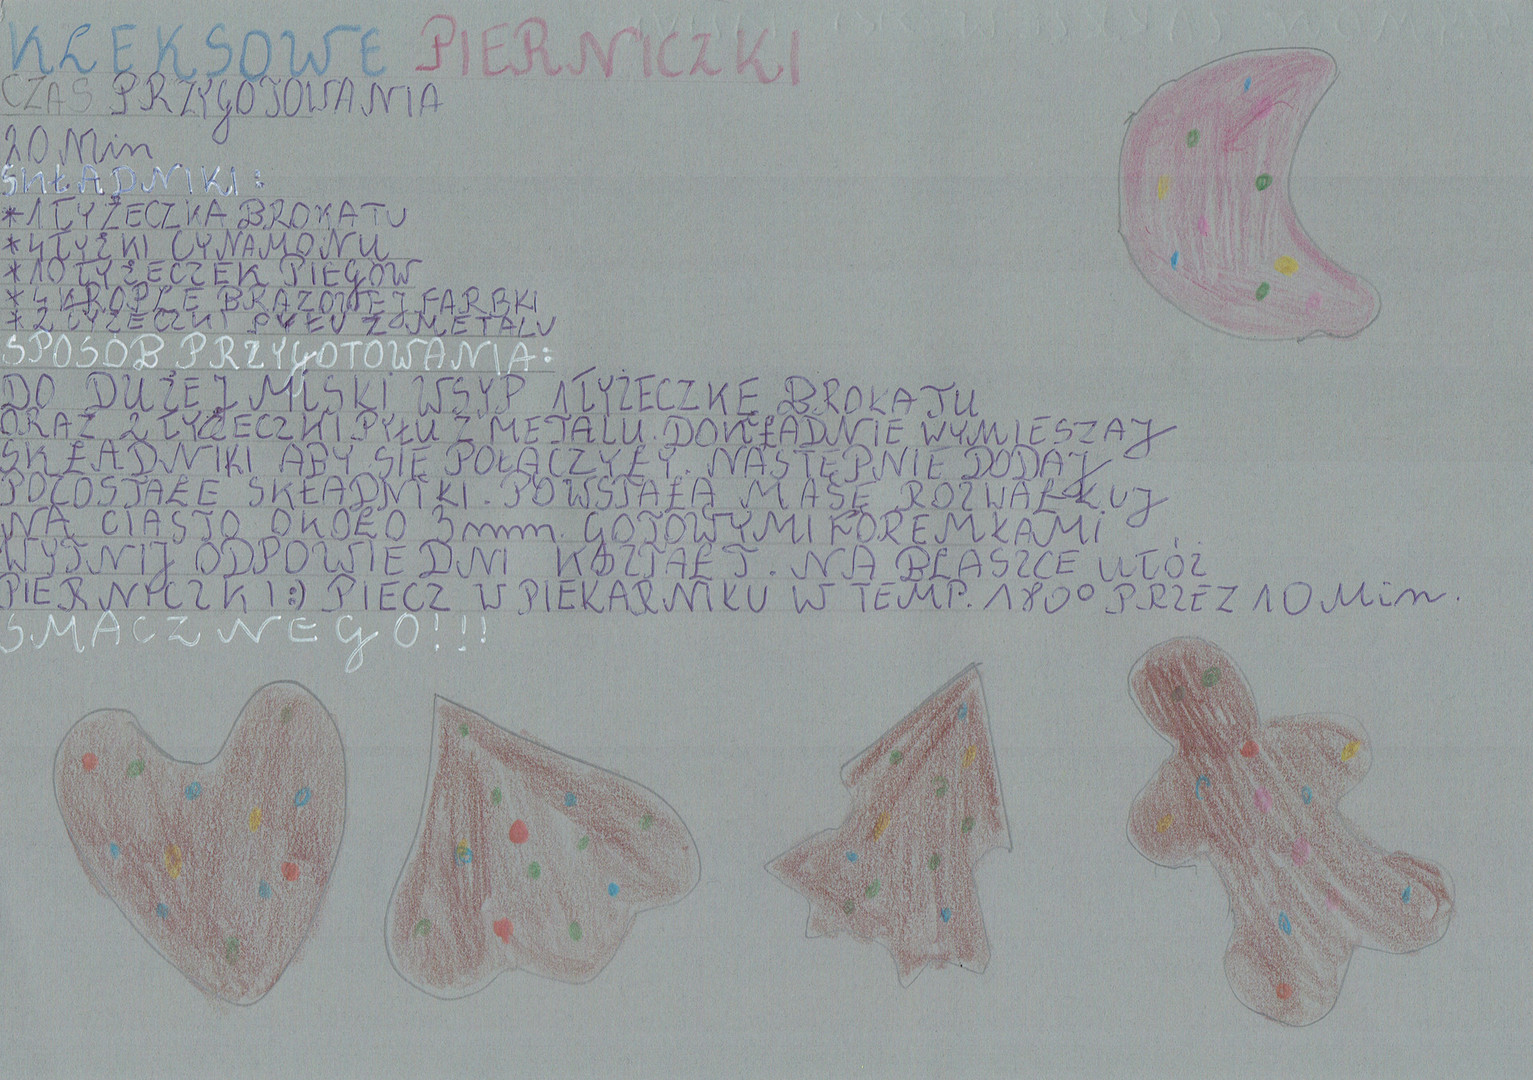 KLEKSOWE PIERNICZKI
CZAS PRZYGOTOWANIA
20 Min
SKŁADNIKI:
*1 ŁYŻECZKA BROKATU
*4 ŁYŻKI CYNAMONU
*10 ŁYŻECZEK PIEGÓW
*4 KROPLE BRĄZOWEJ FARBKI
*2 ŁYŻECZKI PYŁU Z METALU
SPOSÓB PRZYGOTOWANIA:
DO DUŻEJ MISKI WSYP 1 ŁYŻECZKĘ BROKATU
ORAZ 2 ŁYŻECZKI PYŁU Z METALU. DOKŁADNIE WYMIESZAJ
SKŁADNIKI ABY SIĘ POŁĄCZYŁY. NASTĘPNIE DODAJ
POZOSTAŁE SKŁADNIKI. POWSTAŁĄ MASĘ ROZWAŁKUJ
NA CIASTO OKOŁO 3mm. GOTOWYMI FOREMKAMI
WYTNIJ ODPOWIEDNI KSZTAŁT. NA BLASZCE UŁÓŻ
PIERNICZKI:) PIECZ W PIEKARNIKU W TEMP. 180° PRZEZ 10 Min.
SMACZNEGO!!!